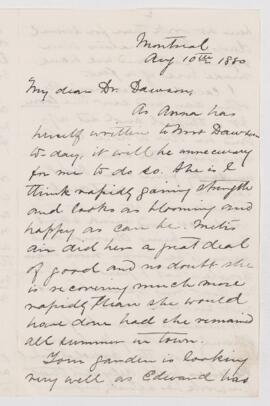 Montreal
Aug 10th 1880
My dear Dr. Dawson,
As Anna has
herself written to Mrs Dawson
to day, it will be unnecessary
for me to do so. She is I
think rapidly gaining strength
and looks as blooming and
happy as can be. Metis
air did her a great deal
of good and no doubt she
is recovering much more
rapidly than she would
have done had she remained
all summer in town.
Your garden is looking
very well as Edward has